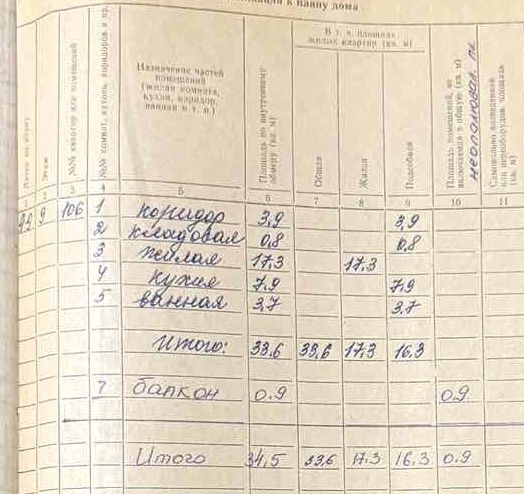 к плану дома
В т. ч. площадь
жилых квартир (кв. м)
Литера по плану
Этаж
№№ квартир или помещений
№№ комнат, кухонь, коридоров и пр.
Назначение частей
помещений
(жилая комната,
кухня, коридор,
ванная и т. п.)
Площадь по внутреннему
обмеру (кв. м)
Общая
Жилая
Подсобная
Площадь помещений, не
включаемая в общую (кв. м)
Самовольно возведенная
или переоборудов. площадь
(кв. м)
1 2 3 4 5 6 7 8 9 10 11
9 106 1 коридор 3,9 3,9
2 кладовая 0,8 0,8
3 жилая 17,3 17,3
4 кухня 7,9 7,9
5 ванная 3,7 3,7
Итого: 33,6 33,6 17,3 16,3
? балкон 0.9 0.9
Итого 34,5 33,6 17.3 16.3 0.9